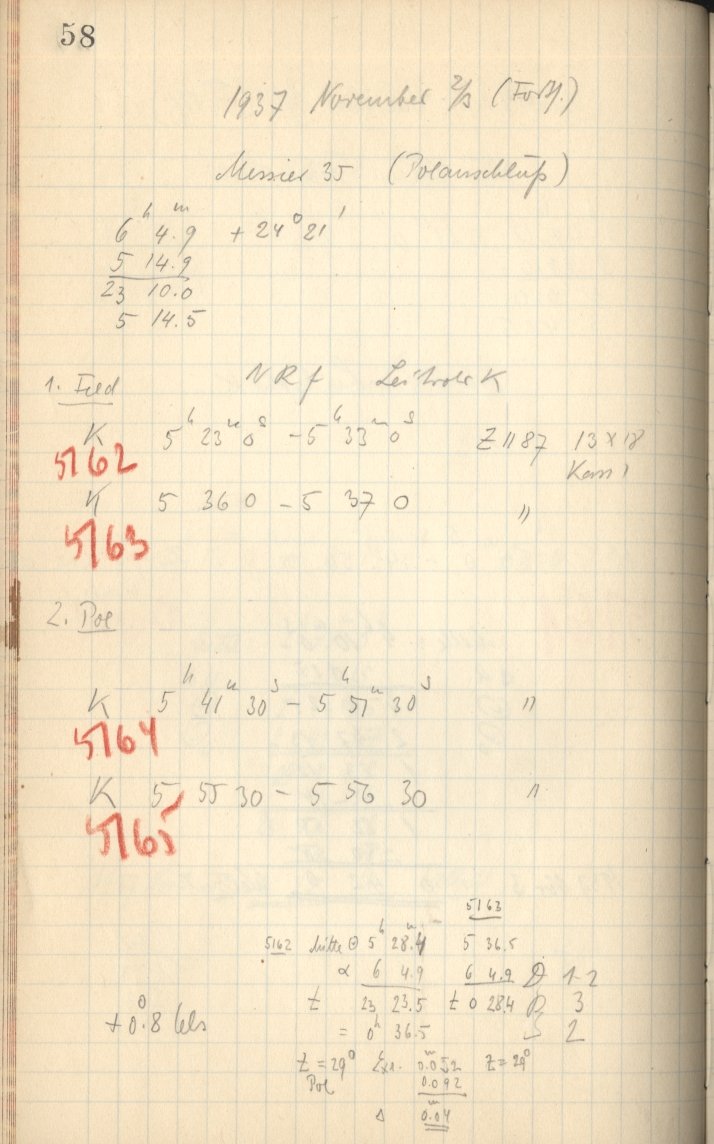 58
1937 November 2/3 (Forts.)
Messier 35 (Polanschluß)
6ʰ 4ᵐ.9 + 24° 21'
5 14.9
23 10.0
5 14.5
1. Feld N R f Leitrohr K
K 5ʰ 23ᵐ 0ˢ - 5ʰ 33ᵐ 0ˢ Z 1187 13 x 18
5162 Kass 1
K 5 36 0 - 5 37 0 "
5163
2. Pol
K 5ʰ 41ᵐ 30ˢ - 5ʰ 51ᵐ 30ˢ "
5164
K 5 55 30 - 5 56 30 "
5165
5163
5162 Mitte Θ 5ʰ 28ᵐ.4 5 36.5
α 6 4.9 6 4.9 D 1-2
t 23 23.5 t 0 28.4 R 3
+0°.8 Cels = 0ʰ 36.5 S 2
Z = 29° Ext. 0ᵐ.052 Z = 29°
Pol 0.092
Δ 0ᵐ.04